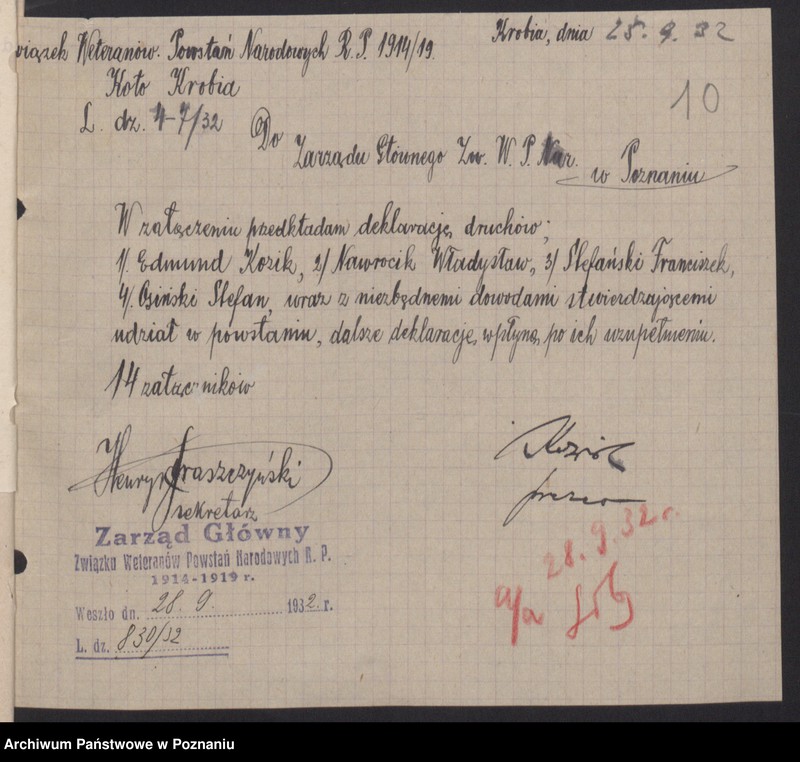 wiązek Weteranów. Powstań Narodowych R. P. 1914/19.
Krobia, dnia 25. 9. 32
Koło Krobia
10
L. dz. 4-7/32
Do
Zarządu Głównego Zw. W. P. Nar.
w Poznaniu
W załączeniu przedkładam deklarację druchów;
1/. Edmund Kozik, 2/ Nawrocik Władysław, 3/ Stefański Franciszek,
4/. Osiński Stefan, wraz z niezbędnemi dowodami stwierdzającemi
udział w powstaniu, dalsze deklaracje, wpłyną po ich uzupełnieniu.
14 załączników
Henryk
sekretarz
prezes
Zarząd Główny
Związku Weteranów Powstań Narodowych R. P.
1914-1919 r.
Weszło dn. 28. 9. 1932. r.
L. dz. 830/32
28. 9. 32 r.
a/a
Archiwum Państwowe w Poznaniu